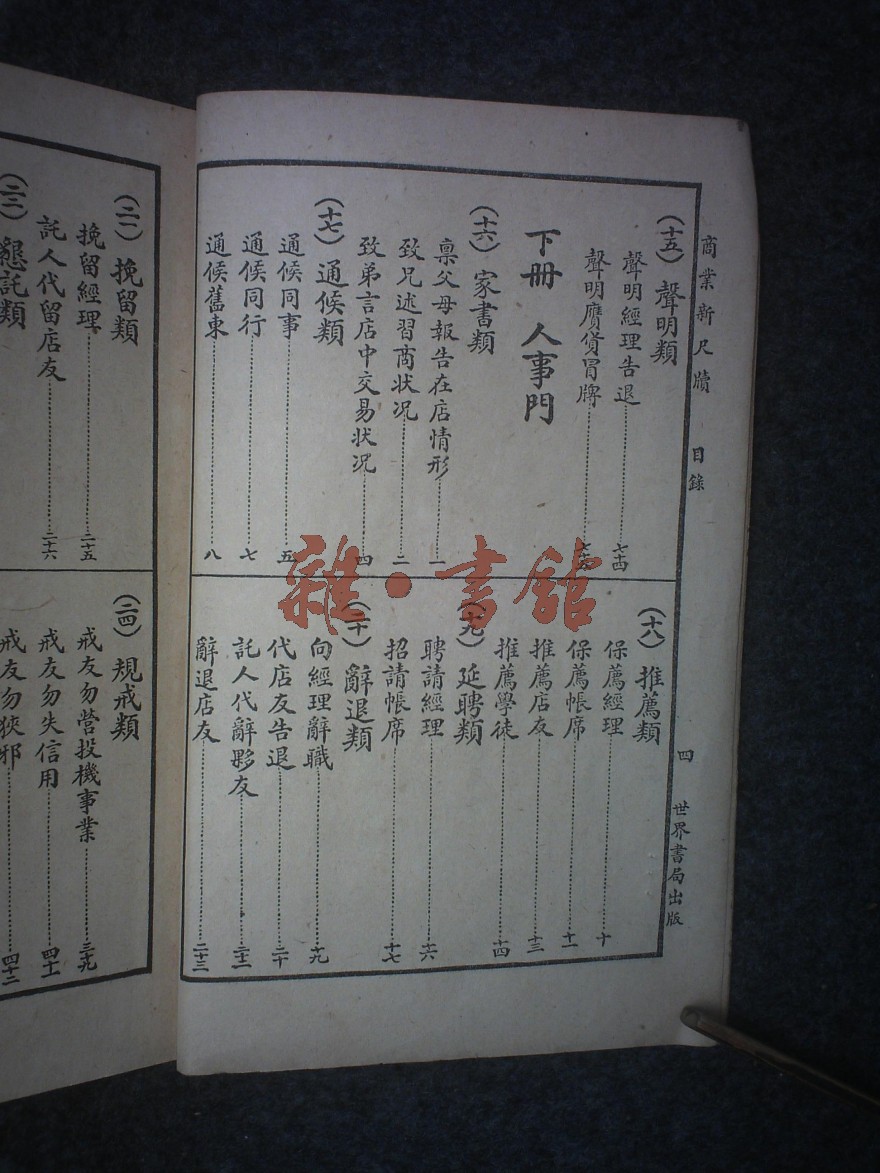 商業新尺牘 目錄 四 世界書局出版
(十五)聲明類
聲明經理告退 七十四
聲明贗貨冒牌
下册 人事門
(十六)家書類
稟父母報告在店情形 一
致兄述習商狀况 二
致弟言店中交易狀况 四
(十七)通候類
通候同事 五
通候同行 七
通候舊東 八
(十八)推薦類
保薦經理 十
保薦帳席 十一
推薦店友 十三
推薦學徒 十四
(十九)延聘類
聘請經理 十六
招請帳席 十七
(二十)辭退類
向經理辭職 十九
代店友告退 二十
託人代辭夥友 二十二
辭退店友 二十三
(二一)挽留類
挽留經理 二十五
託人代留店友 二十六
(二三)懇託類
(二四)規戒類
戒友勿營投機事業 三十九
戒友勿失信用 四十一
戒友勿狹邪 四十二
雜·書館